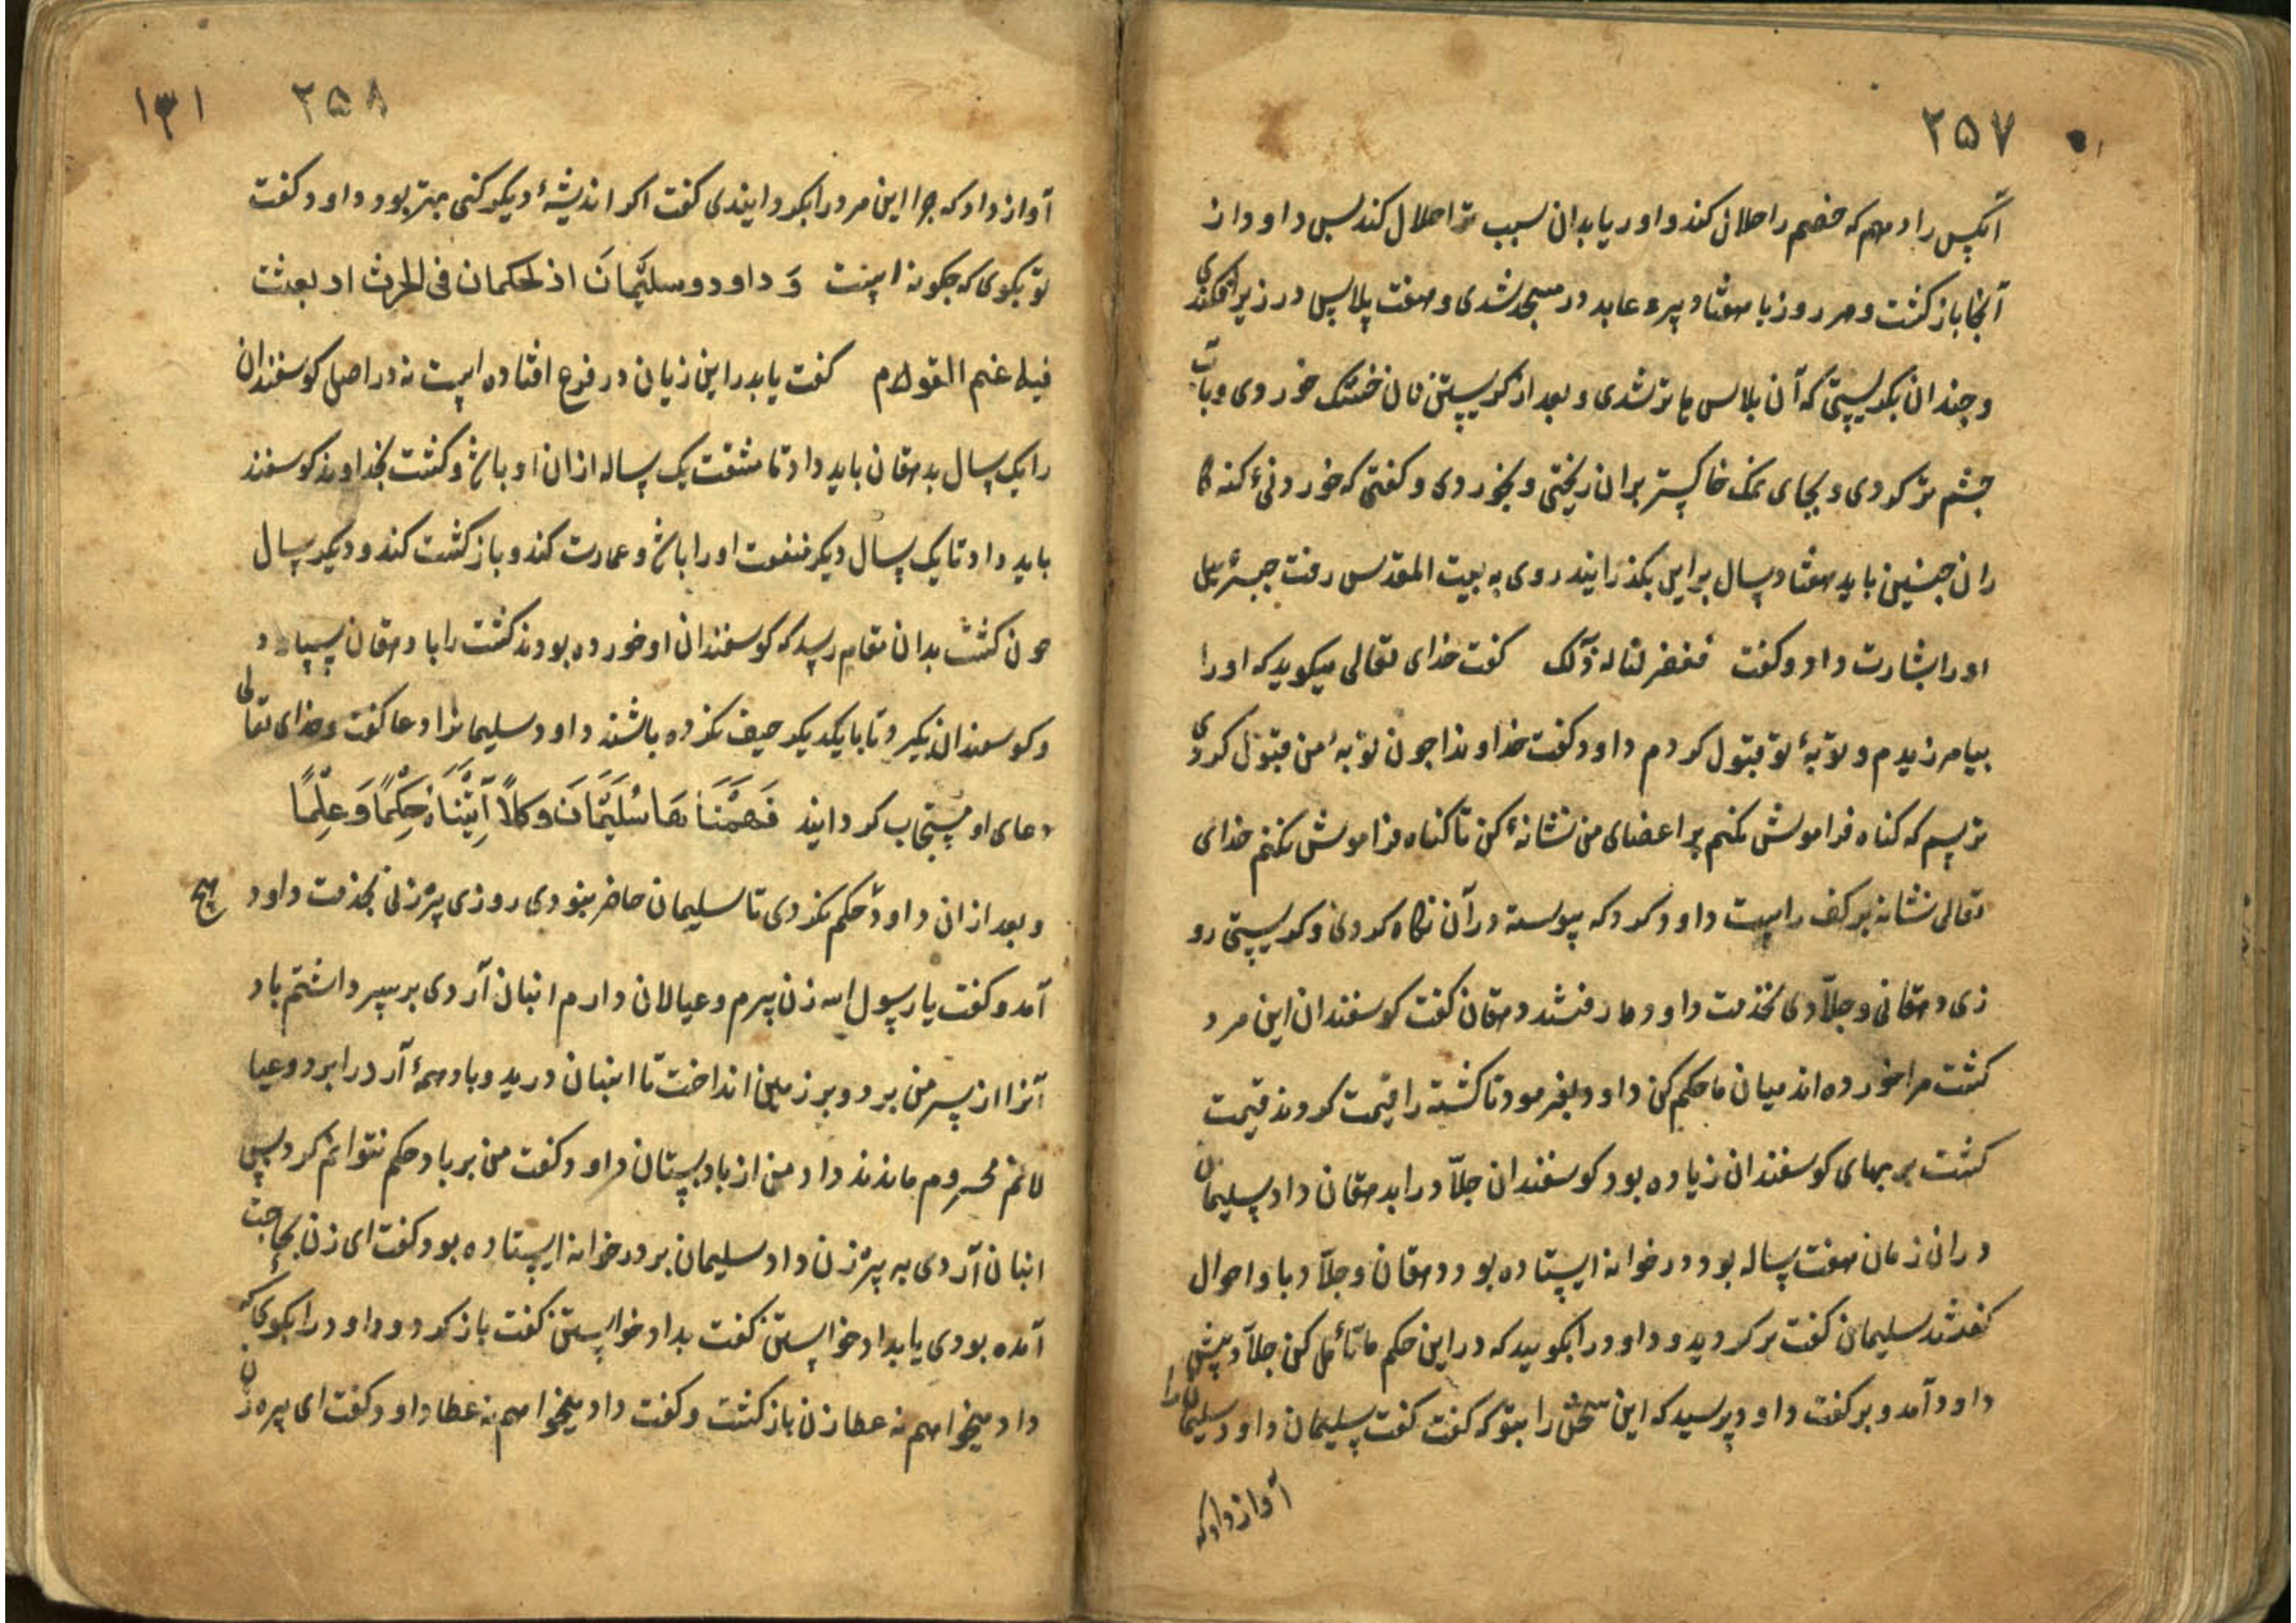 ۲۵۷
آنکس را دهم که خصم را حلال کند و اوریا بدان سبب ترا حلال کند پس داود از
آنجا باز کشت و هر روز با هفتاد پیره عابد در مسجد شدی و هفت پلاس در زیر افکندی
و چندان بکریستی که آن پلاس ها تر شدی و بعد از کریستن نان خشک خوردی و بآب
چشم تر کردی و بجای نمک خاکستر بران ریختی و بخوردی و کفتی که خوردنیٔ کنه کا
ران چنین باید هفتاد سال براین بکذرانید روی به بیت المقدس رفت جبرئیل
او را بشارت داد و کفت فغفرنا له ذلک کفت خدای تعالی میکوید که او را
بیامرزیدم و توبهٔ تو قبول کردم داود کفت خداوندا چون توبهٔ من قبول کردی
ترسم که کناه فراموش کنم بر اعضای من نشانهٔ کن تا کناه فراموش نکنم خدای
تعالی نشانه بر کف راست داود کرد که پیوسته در آن نکاه کردی و کریستی رو
زی دهقانی و جلّادی بخدمت داود رفتند دهقان کفت کوسفندان این مرد
کشت مرا خورده اند میان ما حکم کن داود بفرمود تا کشته را قیمت کردند قیمت
کشت بر بهای کوسفندان زیاده بود کوسفندان جلّاد را بدهقان داد سلیمان
دران زمان هفت ساله بود و در خوانه ایستاده بود دهقان و جلّاد باو احوال
کفتند سلیمان کفت بر کردید و داود را بکویید که در این حکم ما تأمل کن جلّاد پیش
داود آمد و بر کفت داود پرسید که این سخن را بتو که کفت کفت سلیمان داود سلیمان را
آواز داد که
۲۵۸
۱۳۱
آواز داد که چرا این مرد را بکردانیدی کفت اکر اندیشهٔ دیکر کنی بهتر بود داود کفت
تو بکوی که چکونه است وَ داود و سلیمَانَ اذ یحکمان فی الحرث اذ نفشت
فیه غنم القوم کفت یا پدر این زیان در فرع افتاده است نه در اصل کوسفندان
را یک سال بدهقان باید داد تا مشقت یک ساله ازان او باش و کشت بخداوند کوسفند
باید داد تا یک سال دیکر منفعت او را باش و عمارت کند و باز کشت کند و دیکر سال
چون کشت بدان مقام رسد که کوسفندان او خورده بودند کشت را با دهقان سپارد
و کوسفندان بکیرد تا با یکدیکر حیف نکرده باشند داود سلیمانرا دعا کفت و خدای تعالی
دعای او مستجاب کردانید فَفَهَّمْنَاهَا سُلَیْمَانَ وَکلاًّ آتَیْنَاهُ حِکْمًا وَ عِلْمًا
و بعد ازان داود حکم نکردی تا سلیمان حاضر نبودی روزی پیر زنی بخدمت داود
آمد و کفت یا رسول الله زن پیرم و عیالان دارم انبان آردی بر سر داشتم باد
آنرا از سر من برد و بر زمین انداخت تا انبان درید و باد همهٔ آرد را برد و عیا
لانم محروم ماندند داد من از باد بستان داود کفت من بر باد حکم نتوانم کرد پس
انبان آردی به پیر زن داد سلیمان بر در خوانه ایستاده بود کفت ای زن بحاجت
آمده بودی یا بداد خواستن کفت بداد خواستن کفت باز کرد و داود را بکوی که
داد میخواهم نه عطا زن باز کشت و کفت داد میخواهم نه عطا داود کفت ای پیره زن